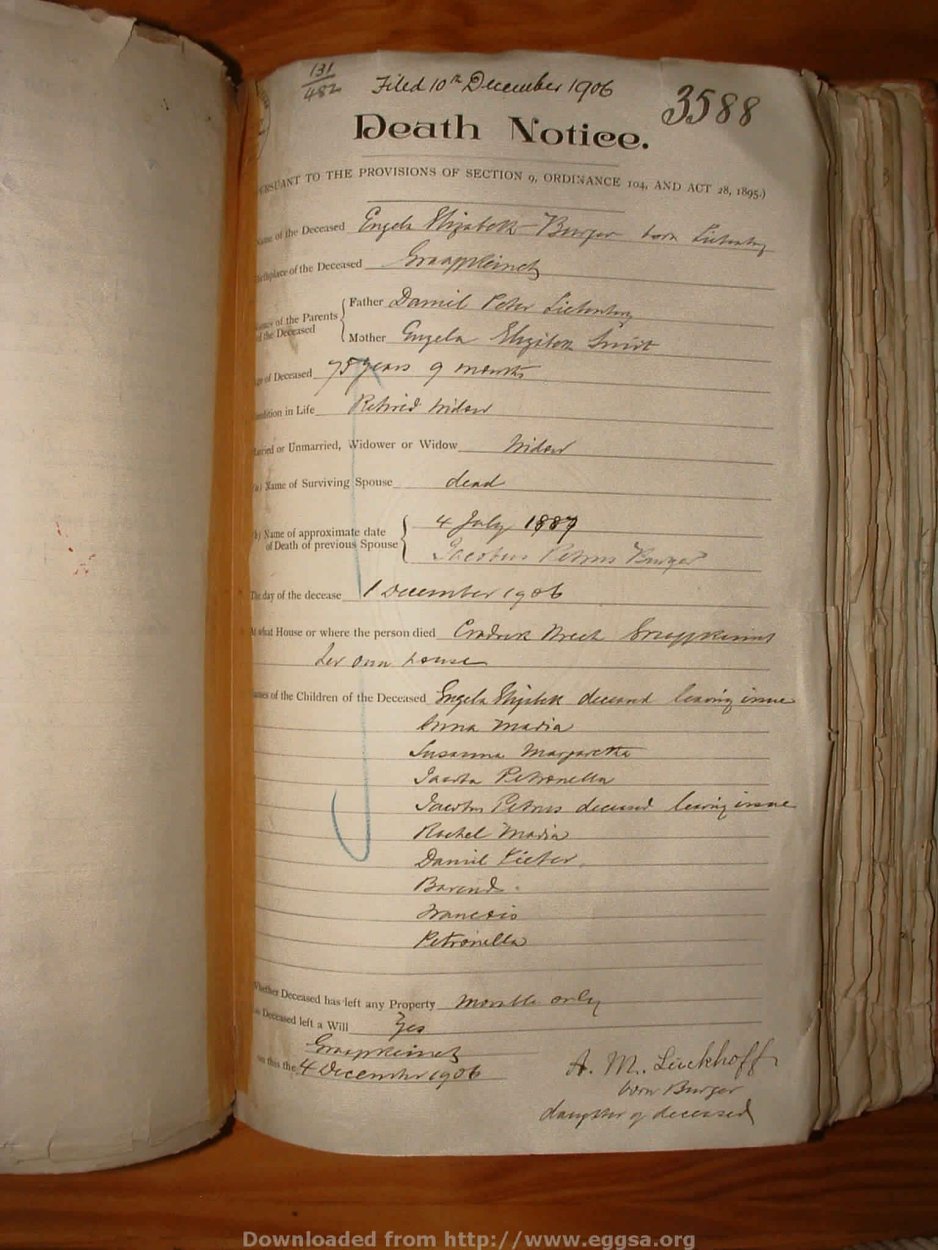 131
482
Filed 10th December 1906
3588
Death Notice.
PURSUANT TO THE PROVISIONS OF SECTION 9, ORDINANCE 104, AND ACT 28, 1895.)
Name of the Deceased Engela Elizabeth Burger born
Birthplace of the Deceased Graaffreinet
Names of the Parents of the Deceased
Father Daniel Peter
Mother Engela Elizabeth Smidt
Age of Deceased 75 years 9 months
Condition in Life Retired Widow
Married or Unmarried, Widower or Widow Widow
(a) Name of Surviving Spouse dead
(b) Name of approximate date of Death of previous Spouse
4 July 1887
Jacobus Petrus Burger
The day of the decease 1 December 1906
At what House or where the person died Cradock Street Graaffreinet
her own house
Names of the Children of the Deceased Engela Elizabeth deceased leaving issue
Anna Maria
Susanna Margaretta
Jacoba Petronella
Jacobus Petrus deceased leaving issue
Rachel Maria
Daniel Pieter
Barend
Francois
Petronella
Whether Deceased has left any Property Movable only
Deceased left a Will Yes
Graaffreinet
on this the 4 December 1906
A. M. Luckhoff
born Burger
daughter of deceased
Downloaded from http://www.eggsa.org